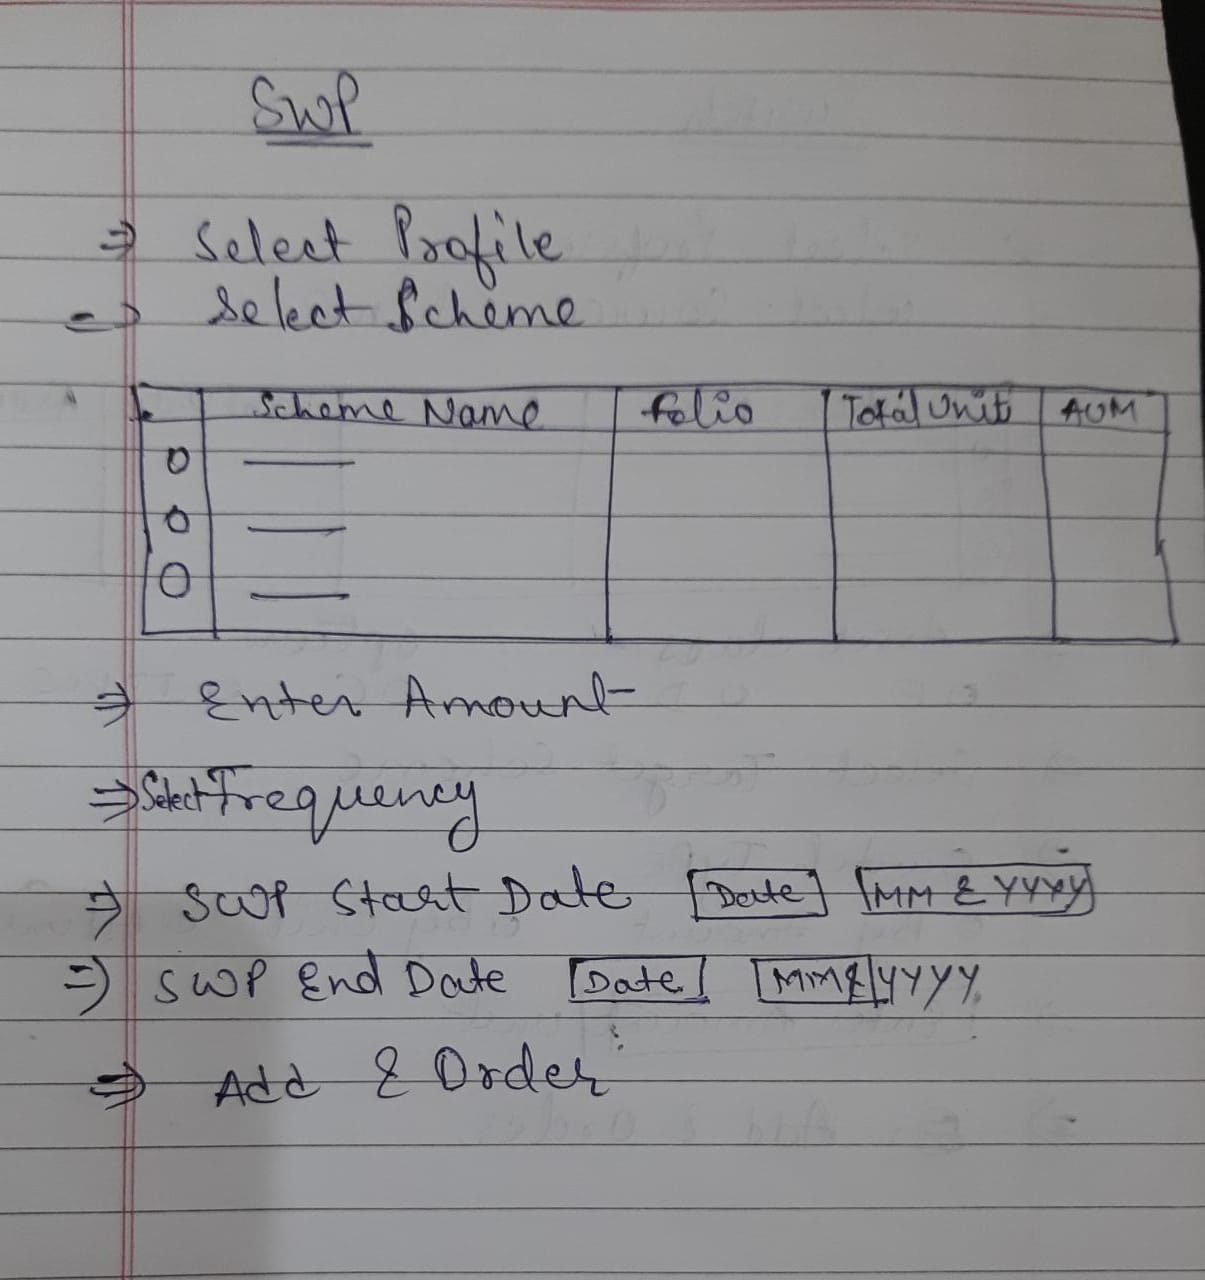 SWP
⇒ Select Profile
⇒ Select Scheme
Scheme Name Folio Total Unit AUM
⇒ Enter Amount
⇒ Select Frequency
⇒ SWP Start Date [Date] [MM & YYYY]
⇒ SWP End Date [Date] [MM & YYYY
⇒ Add & Order